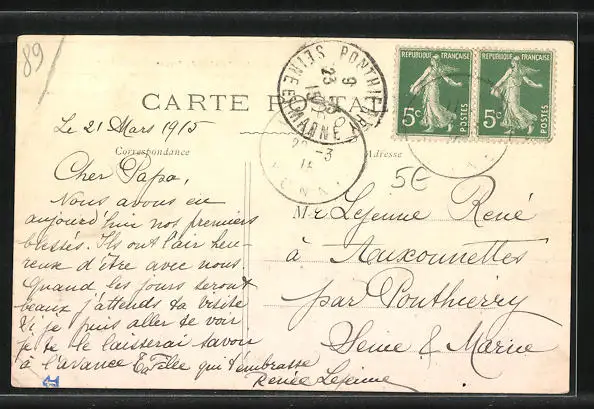 89
CARTE POSTALE
Le 21 Mars 1915
Correspondance
Adresse
Cher Papa,
Nous avons eu
aujourd'hui nos premiers
blessés. Ils ont l'air heu-
reux d'être avec nous.
Quand les jours seront
beaux j'attends ta visite
Si je puis aller te voir
je te le laisserai savoir
à l'avance Ta Fille qui t'embrasse
Renée Lejeune
PONTHIERRY
SEINE ET MARNE
23
REPUBLIQUE FRANÇAISE
5c
POSTES
REPUBLIQUE FRANÇAISE
5c
POSTES
5E
Mr Lejeune René
à Auxonnettes
par Ponthierry
Seine & Marne